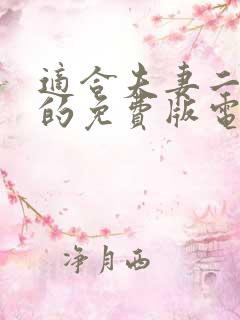 適合夫妻二
的免費版電
净月西